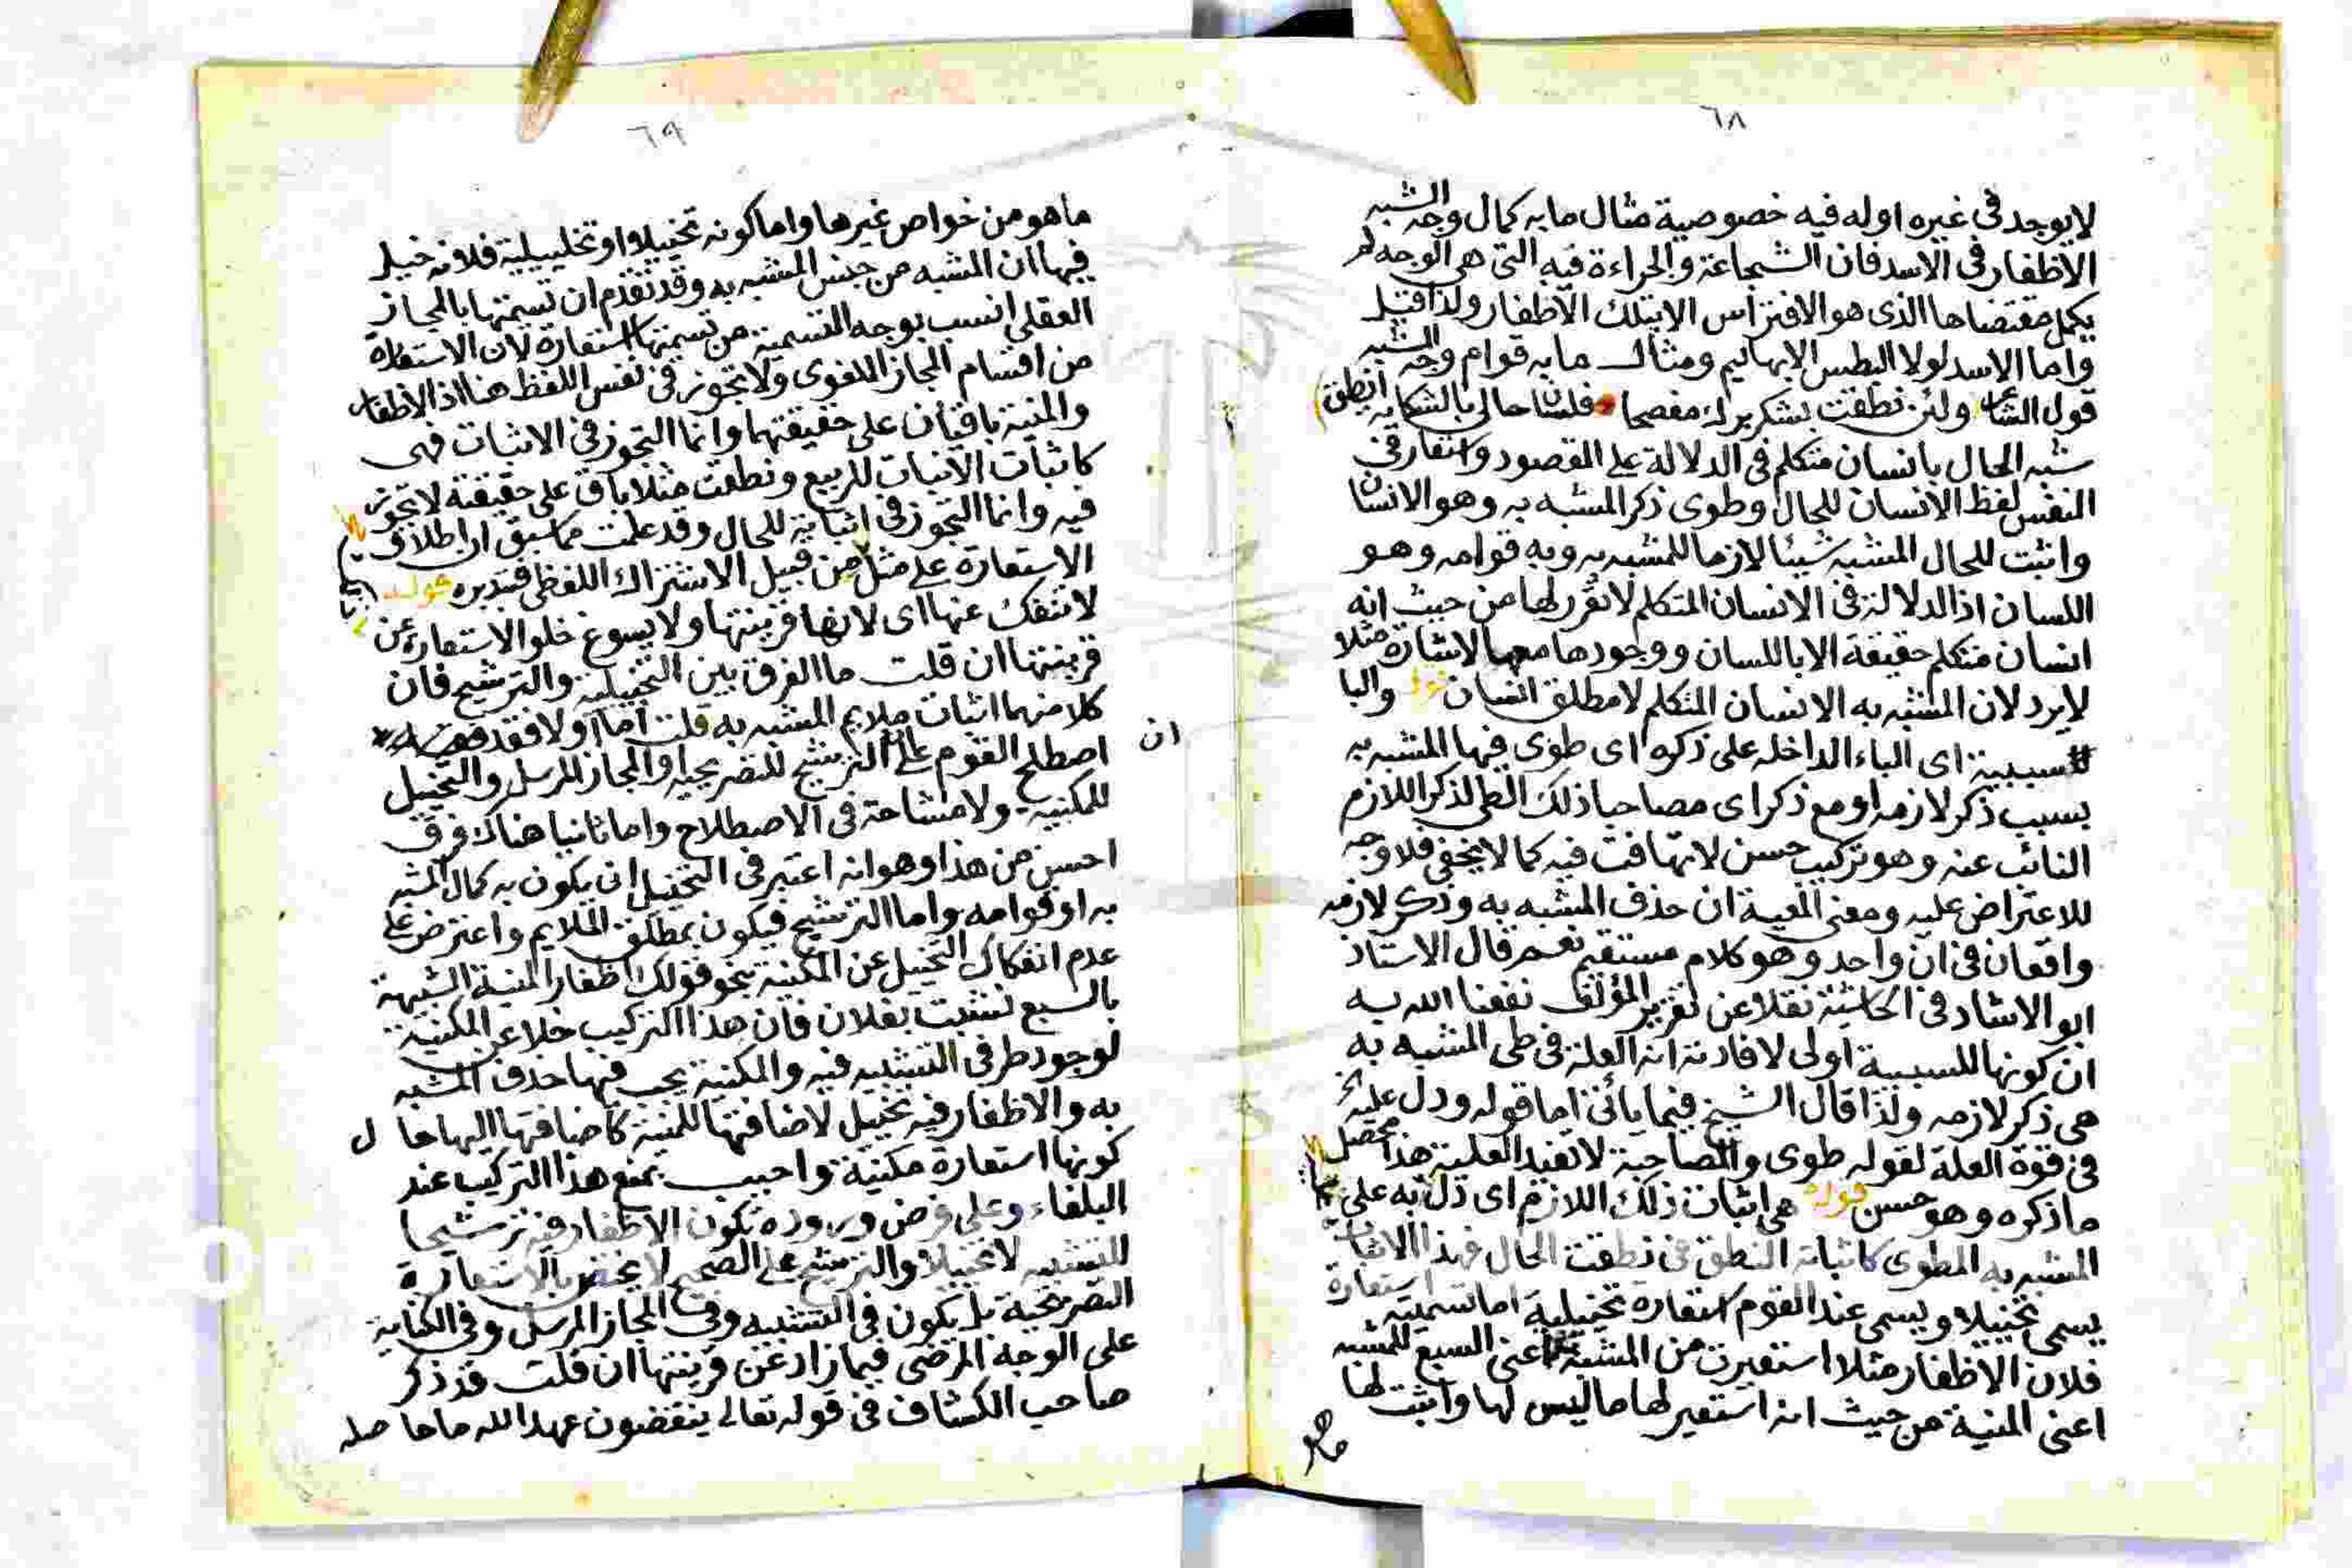 ٦٨
لا يوجد فى غيره او له فيه خصوصية مثال ما به كمال وجه الشبه
الاظفار فى الاسد فان الشجاعة والجراءة فيه التى هى الوجه لم
يكمل مقتضاها الذى هو الافتراس الا بتلك الاظفار ولذا قيل
وما الاسد لولا البطش الا بهايم ومثال ما به قوام وجه الشبه
قول الشاعر ولئن نطقت بشكر برك مفصحا فلسان حالى بالشكاية انطق
شبه الحال بانسان متكلم فى الدلالة على المقصود واستعار فى
النفس لفظ الانسان للحال وطوى ذكر المشبه به وهو الانسان
واثبت للحال المشبه شيئا لازما للمشبه به وبه قوامه وهو
اللسان اذ الدلالة فى الانسان المتكلم لا تقرر لها من حيث انه
انسان متكلم حقيقة الا باللسان ووجودها معها لاشارة مثلا
لا يرد لان المشبه به الانسان المتكلم لا مطلق انسان قوله والبا
سببية اى الباء الداخله على ذكره اى طوى فيها المشبه به
بسبب ذكر لازمه او مع ذكر اى مصاحبا ذلك الطى لذكر اللازم
النائب عنه وهو تركيب حسن لا تهافت فيه كما لا يخفى فلا وجه
للاعتراض عليه ومعنى المعية ان حذف المشبه به وذكر لازمه
واقعان فى آن واحد وهو كلام مستقيم نعم قال الاستاذ
ابو الارشاد فى الحاشية نقلا عن تقرير المؤلف نفعنا الله به
ان كونها للسببية اولى لافادته انه العلة فى طى المشبه به
هى ذكر لازمه ولذا قال الشيخ فيما يأتى اما قوله ودل عليه
فى قوة العلة لقوله طوى والمصاحبة لا تفيد العلية هذا محصل
ما ذكره وهو حسن قوله هى اثبات ذلك اللازم اى دل به على
المشبه به المطوى كاثبات النطق فى نطقت الحال فهذا الاثبات
يسمى تخييلا ويسمى عند القوم استعارة تخييلية اما تسميته استعارة
فلان الاظفار مثلا استعيرت من المشبه به اعنى السبع للمشبه
اعنى المنية من حيث انه استعير لها ما ليس لها واثبت لها
ما هو
٦٩
ما هو من خواص غيرها واما كونه تخييلا او تخييلية فلانه خيل
فيها ان المشبه من جنس المشبه به وقد تقدم ان تسيمتها بالمجاز
العقلى انسب بوجه التسمية من تسيمتها استعارة لان الاستعارة
من اقسام المجاز اللغوى ولا تجوز فى نفس اللفظ هنا اذ الاظفار
والمنية باقيان على حقيقتهما وانما التجوز فى الاثبات فهى
كاثبات الانبات للربيع ونطقت مثلا باق على حقيقته لا تجوز
فيه وانما التجوز فى اثباته للحال وقد علمت مما سبق ان اطلاق
الاستعارة على مثل من قبيل الاشتراك اللفظى فتدبره قوله
لا تنفك عنها اى لانها قرينتها ولا يسوغ خلو الاستعارة عن
قرينتها ان قلت ما الفرق بين التخييلية والترشيح فان
كلا منهما اثبات ملايم المشبه به قلت اما اولا فقد
ان
اصطلح القوم على الترشيح للتصريحيه او المجاز المرسل والتخييل
للمكنية ولا مشاحة فى الاصطلاح واما ثانيا هناك فرق
احسن من هذا وهو انه اعتبر فى التخييل ان يكون به كمال المشبه
به او قوامه واما الترشيح فيكون بمطلق الملايم واعترض على
عدم انفكاك التخييل عن المكنية بنحو قولك اظفار المنية الشبيهة
بالسبع نشبت بفلان فان هذا التركيب خلا عن المكنية
لوجود طرفى التشبيه فيه والمكنية يجب فيها حذف المشبه
به والاظفار فيه تخييل لاضافتها للمنية كاضافتها اليها حال
كونها استعارة مكنية واجيب بمنع هذا التركيب عند
البلغاء وعلى فرض وروده تكون الاظفار فيه ترشيحا
للتشبيه لا تخييلا والترشيح على الصحيح لا يختص بالاستعارة
التصريحية بل يكون فى التشبيه وفى المجاز المرسل وفى الكناية
على الوجه المرضى فيما زاد عن قرينتها ان قلت قد ذكر
صاحب الكشاف فى قوله تعالى ينقضون عهد الله ما حاصله